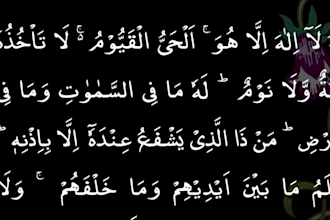 لَاۤ اِلٰهَ اِلَّا هُوَ ۚ اَلْحَیُّ الْقَیُّوْمُ ۚ۬ لَا تَاْخُذُهٗ
وَّلَا نَوْمٌ ؕ لَهٗ مَا فِی السَّمٰوٰتِ وَمَا فِی
ؕ مَنْ ذَا الَّذِیْ یَشْفَعُ عِنْدَهٗۤ اِلَّا بِاِذْنِهٖ ؕ
مَا بَیْنَ اَیْدِیْهِمْ وَمَا خَلْفَهُمْ ۚ وَلَا